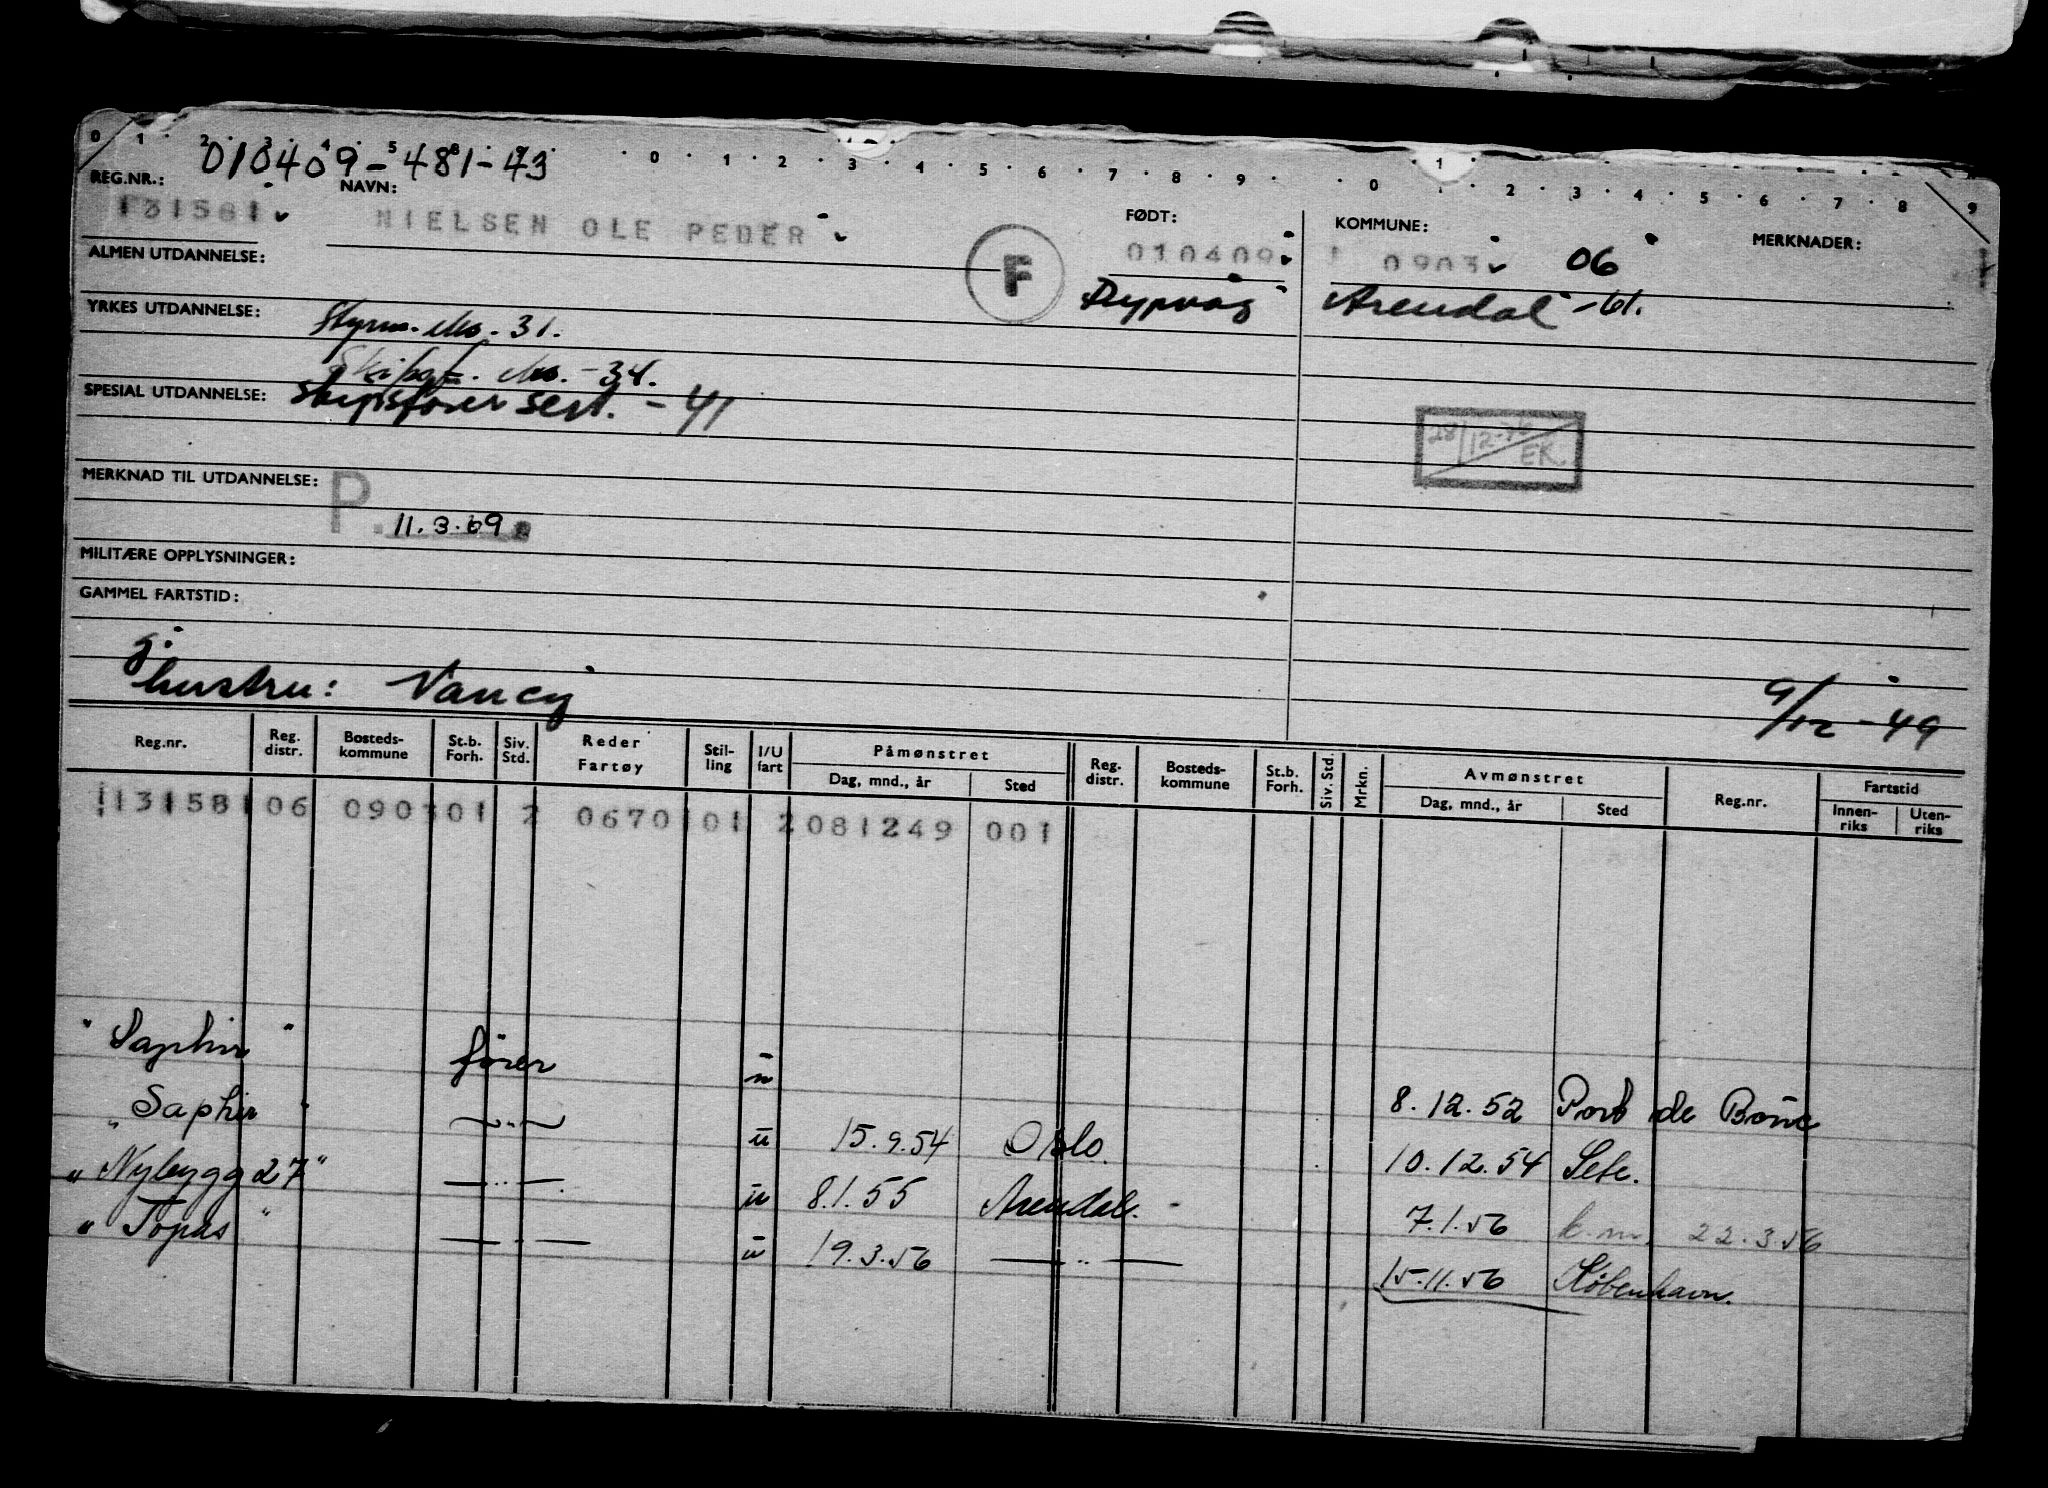 0 1 2 3 4 5 8 9 0 1 2 3 4 5 6 7 8 9 0 1 2 3 4 5 6 7 8 9
010409-481-43
REG.NR.: NAVN: FØDT: KOMMUNE: MERKNADER:
131581 NIELSEN OLE PEDER F 010409 0903 06
ALMEN UTDANNELSE: Dypvåg Arendal -61.
YRKES UTDANNELSE: Styrm. eks. 31.
Skipsf. eks. -34.
SPESIAL UTDANNELSE: skipsfører sert. - 41
28/12-76 EK.
MERKNAD TIL UTDANNELSE: P.
11.3.69
MILITÆRE OPPLYSNINGER:
GAMMEL FARTSTID:
g.
hustru: Nancy 9/12-49
Reg.nr. Reg. distr. Bosteds-kommune St.b. Forh. Siv. Std. Reder Fartøy Stil-ling I/U fart Påmønstret Reg. distr. Bosteds-kommune St.b. Forh. Siv. Std. Mrkn. Avmønstret Reg.nr. Fartstid
Dag, mnd., år Sted Dag, mnd., år Sted Innen-riks Uten-riks
131581 06 0903 01 2 0670 01 2 081249 001
"Saphir" fører u 8.12.52 Port de Bouc
"Saphir" —"— u 15.9.54 Oslo. 10.12.54 Sete.
"Nybygg 27" —"— u 8.1.55 Arendal. 7.1.56 k.m. 22.3.56
"Topas" —"— u 19.3.56 —"— 15.11.56 København.